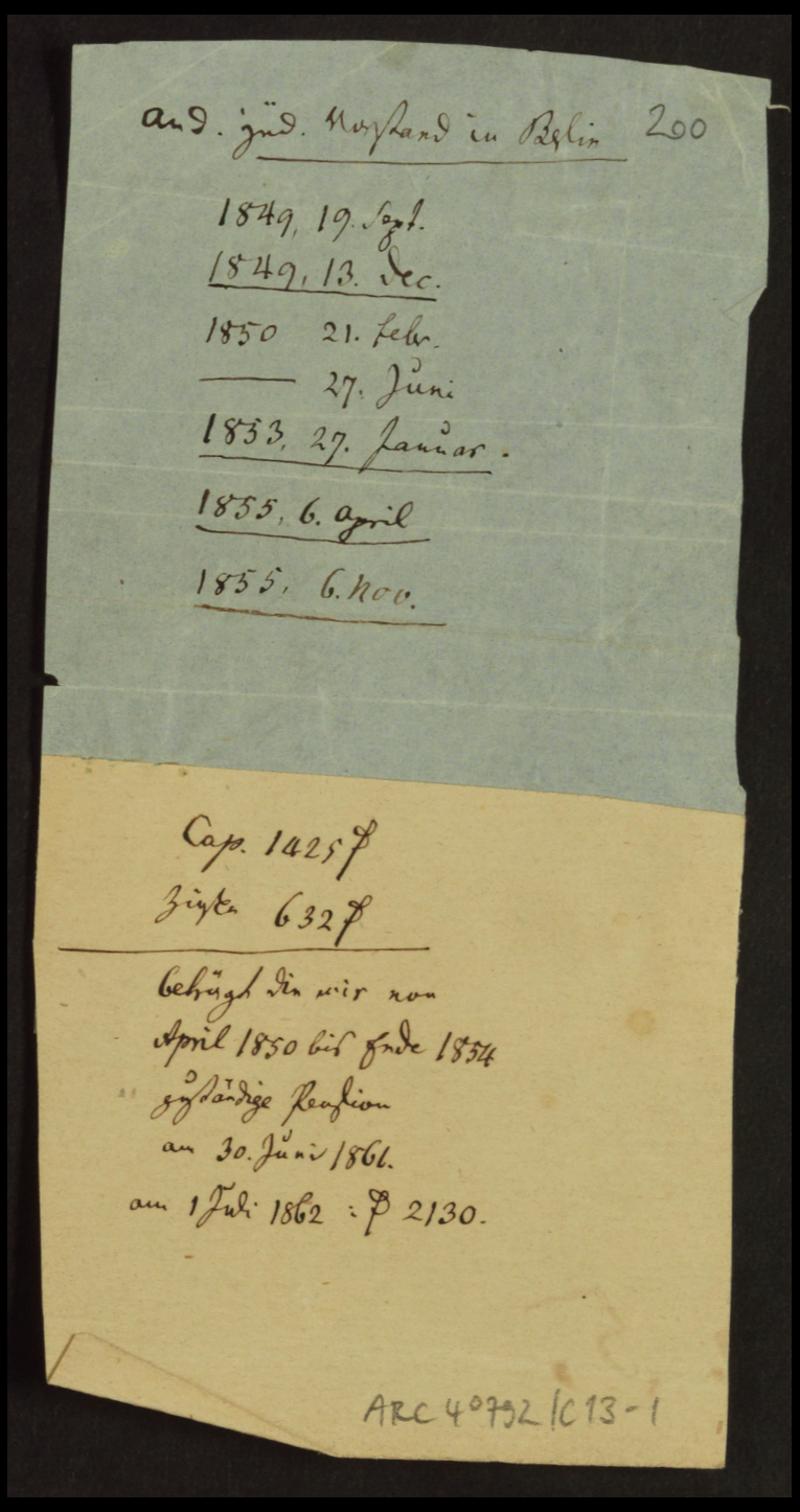 and. jüd. Vorstand in Berlin 200
1849, 19. Sept.
1849, 13. Dec.
1850 21. Febr.
—— 27. Juni
1853, 27. Januar.
1855, 6. April
1855, 6. Nov.
Cap. 1425 ₰
Zinsen 632 ₰
beträgt die mir von
April 1850 bis Ende 1854
zuständige Pension
am 30. Juni 1861.
am 1 Juli 1862 : ₰ 2130.
ARC 4° 792/C13-1